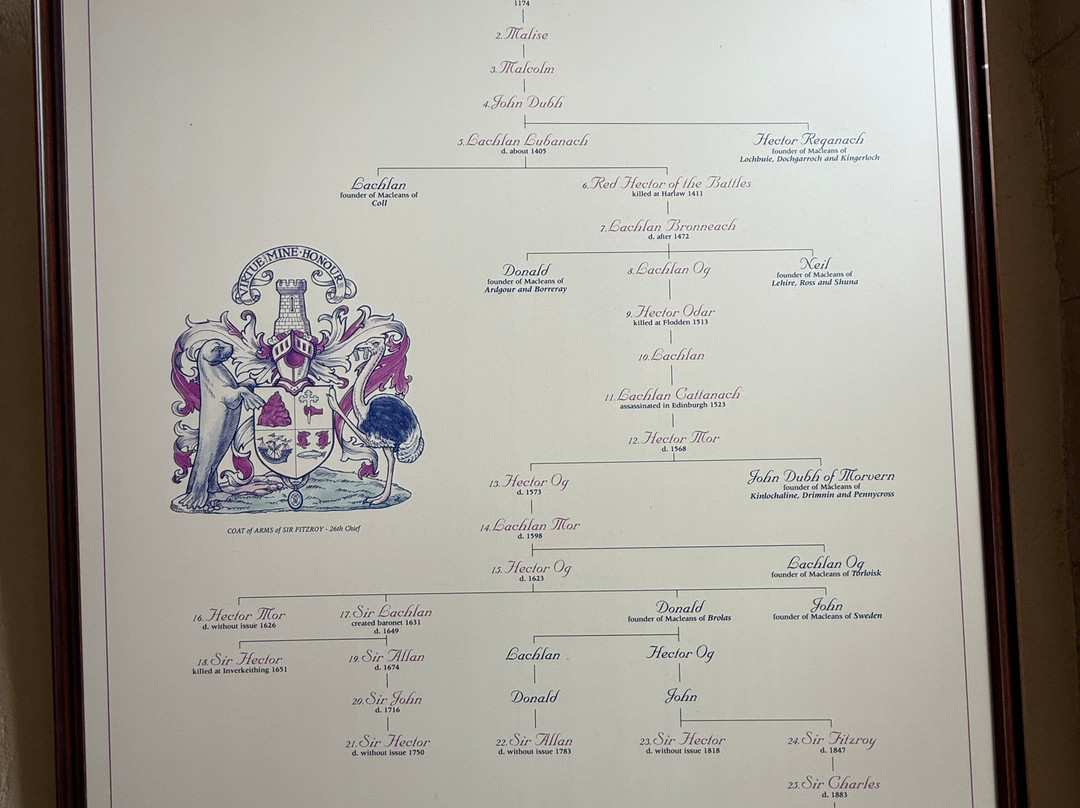 1174
2. Malise
3. Malcolm
4. John Dubh
5. Lachlan Lubanach
d. about 1405
Hector Reganach
founder of Macleans of
Lochbuie, Dochgarroch and Kingerloch
Lachlan
founder of Macleans of
Coll
6. Red Hector of the Battles
killed at Harlaw 1411
7. Lachlan Bronneach
d. after 1472
Donald
founder of Macleans of
Ardgour and Borreray
8. Lachlan Og
Neil
founder of Macleans of
Lehire, Ross and Shuna
9. Hector Odar
killed at Flodden 1513
10. Lachlan
11. Lachlan Cattanach
assassinated in Edinburgh 1523
12. Hector Mor
d. 1568
13. Hector Og
d. 1573
John Dubh of Morvern
founder of Macleans of
Kinlochaline, Drimnin and Pennycross
14. Lachlan Mor
d. 1598
15. Hector Og
d. 1623
Lachlan Og
founder of Macleans of Torloisk
16. Hector Mor
d. without issue 1626
17. Sir Lachlan
created baronet 1631
d. 1649
Donald
founder of Macleans of Brolas
John
founder of Macleans of Sweden
18. Sir Hector
killed at Inverkeithing 1651
19. Sir Allan
d. 1674
Lachlan
Hector Og
20. Sir John
d. 1716
Donald
John
21. Sir Hector
d. without issue 1750
22. Sir Allan
d. without issue 1783
23. Sir Hector
d. without issue 1818
24. Sir Fitzroy
d. 1847
25. Sir Charles
d. 1883
VIRTUE MINE HONOUR
COAT of ARMS of SIR FITZROY - 26th Chief